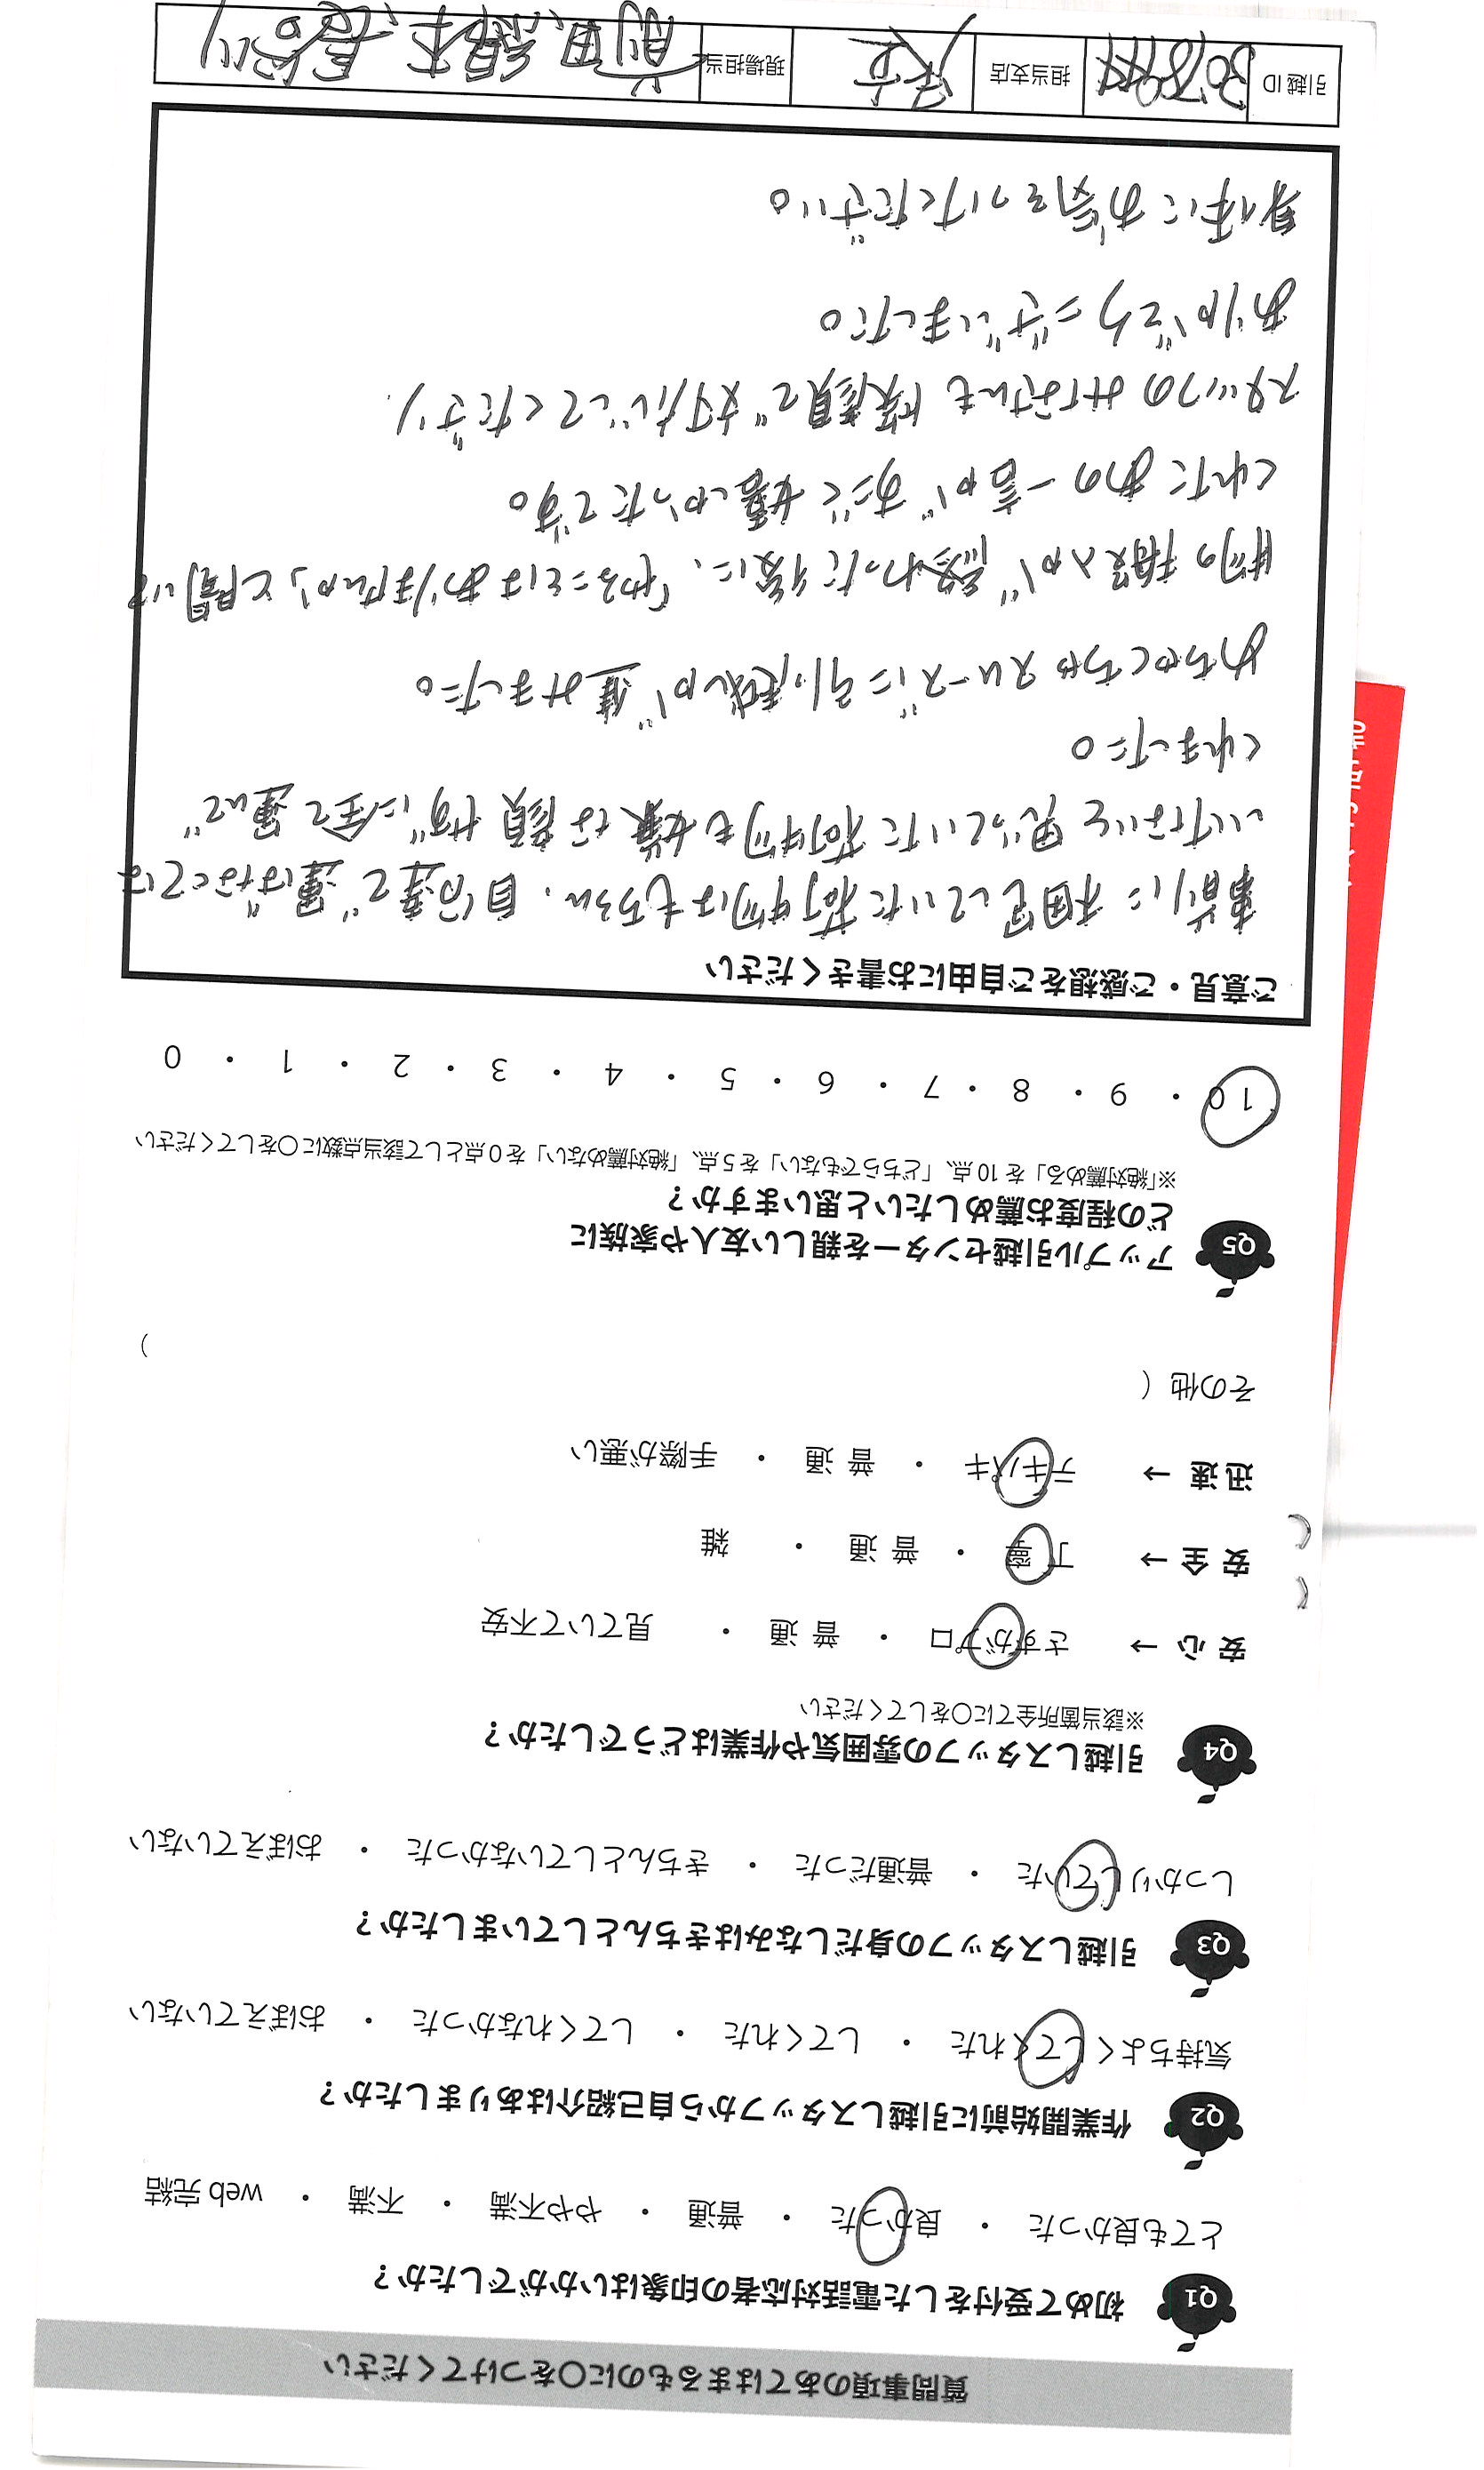 質問事項のあてはまるものに○をつけてください
Q1 初めて受付をした電話対応者の印象はいかがでしたか？
とても良かった ・ 良かった ・ 普通 ・ やや不満 ・ 不満 ・ web 完結
Q2 作業開始前に引越しスタッフから自己紹介はありましたか？
気持ちよくしてくれた ・ してくれた ・ してくれなかった ・ おぼえていない
Q3 引越しスタッフの身だしなみはきちんとしていましたか？
しっかりしていた ・ 普通だった ・ きちんとしていなかった ・ おぼえていない
Q4 引越しスタッフの雰囲気や作業はどうでしたか？
※該当箇所全てに○をしてください
安 心 → さすがプロ ・ 普 通 ・ 見ていて不安
安 全 → 丁 寧 ・ 普 通 ・ 雑
迅 速 → テキパキ ・ 普 通 ・ 手際が悪い
その他（ ）
Q5 アップル引越センターを親しい友人や家族に
どの程度お薦めしたいと思いますか？
※「絶対薦める」を 10 点、「どちらでもない」を 5 点、「絶対薦めない」を 0 点として該当点数に○をしてください
10 ・ 9 ・ 8 ・ 7 ・ 6 ・ 5 ・ 4 ・ 3 ・ 2 ・ 1 ・ 0
ご意見・ご感想をご自由にお書きください
事前に相見していた荷物はもちろん、自分達で運ばなくては
いけないと思っていた荷物も嫌な顔せずに全て運んで
くれました。
めちゃくちゃスムーズに引っ越しが進みました。
物の搬入が終わった後に、「やることはありませんか」と聞いて
くれたあの一言がすごく嬉しかったです。
スタッフのみなさんも笑顔で対応してくださり、
ありがとうございました。
身体にお気をつけください。
引越 ID 担当支店 現場担当 前田、